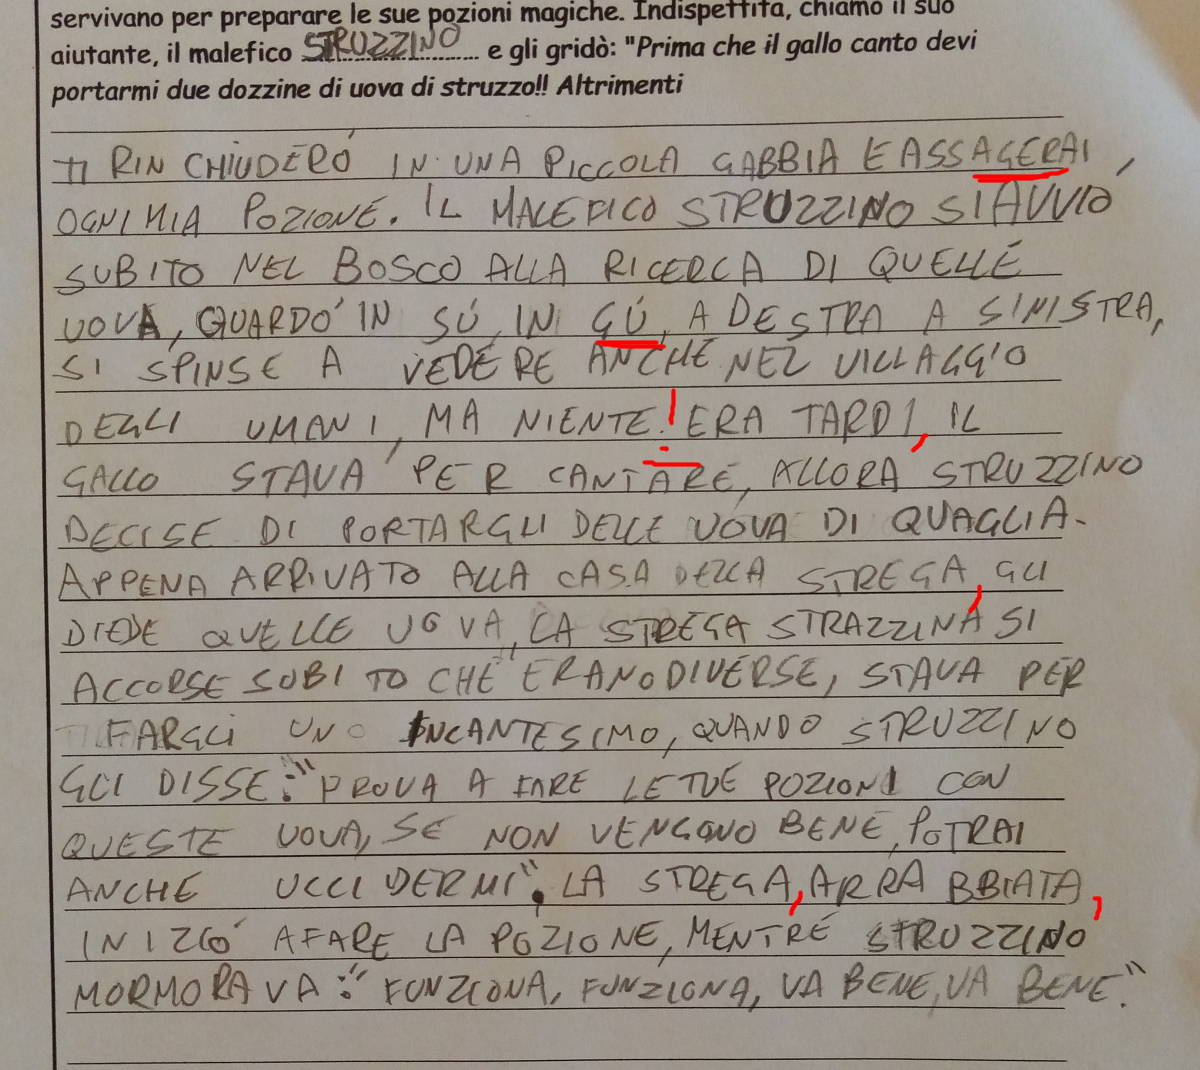 servivano per preparare le sue pozioni magiche. Indispettita, chiamò il suo
aiutante, il malefico STRUZZINO e gli gridò: "Prima che il gallo canto devi
portarmi due dozzine di uova di struzzo!! Altrimenti
TI RINCHIUDERÓ IN UNA PICCOLA GABBIA E ASSAGERAI
OGNI MIA POZIONE. IL MALEFICO STRUZZINO SI AVVIÓ
SUBITO NEL BOSCO ALLA RICERCA DI QUELLE
UOVA, GUARDO' IN SÚ, IN GÚ, A DESTRA A SINISTRA,
SI SPINSE A VEDERE ANCHE NEL VILLAGGIO
DEGLI UMANI, MA NIENTE! ERA TARDI, IL
GALLO STAVA PER CANTARE, ALLORA STRUZZINO
DECISE DI PORTARGLI DELLE UOVA DI QUAGLIA.
APPENA ARRIVATO ALLA CASA DELLA STREGA, GLI
DIEDE QUELLE UOVA, LA STREGA STRAZZINA SI
ACCORSE SUBITO CHE ERANO DIVERSE, STAVA PER
FARGLI UNO INCANTESIMO, QUANDO STRUZZINO
GLI DISSE: "PROVA A FARE LE TUE POZIONI CON
QUESTE UOVA, SE NON VENGONO BENE, POTRAI
ANCHE UCCIDERMI". LA STREGA, ARRABBIATA,
INIZIÓ A FARE LA POZIONE, MENTRE STRUZZINO
MORMORAVA: "FUNZIONA, FUNZIONA, VA BENE, VA BENE."